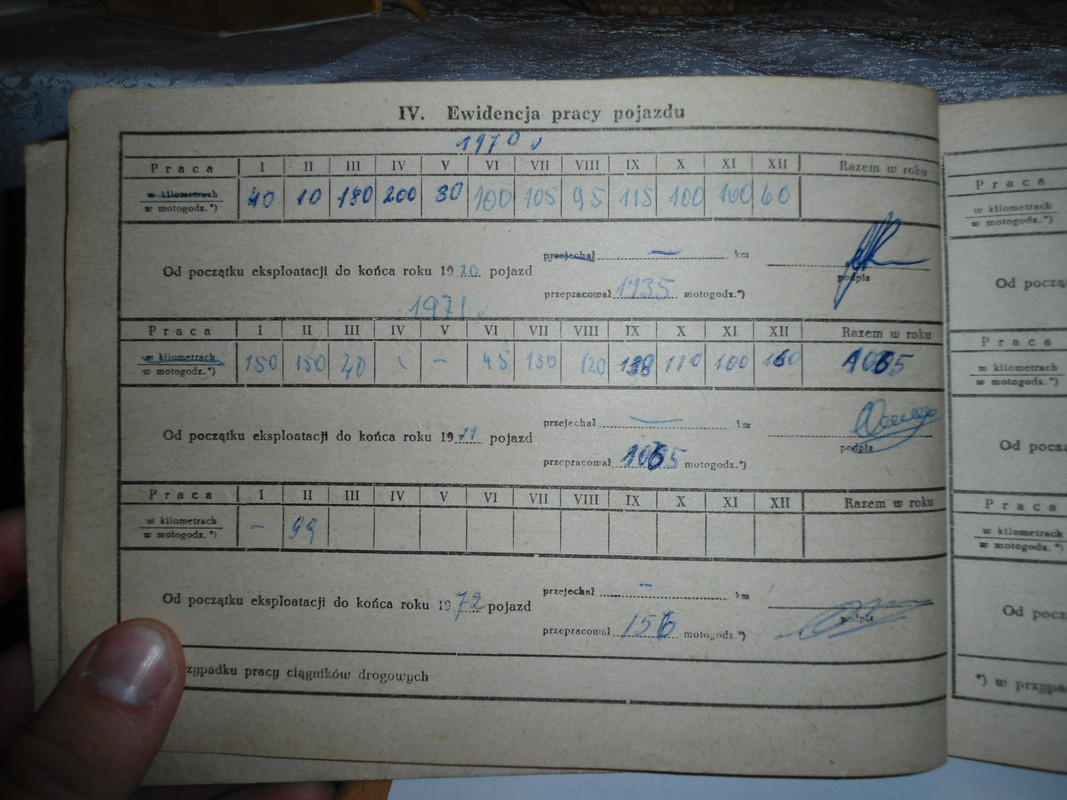 IV. Ewidencja pracy pojazdu
1970
Praca I II III IV V VI VII VIII IX X XI XII Razem w roku
w kilometrach 40 10 180 200 30 100 105 95 115 100 100 60
w motogodz.*)
przejechał — km
Od początku eksploatacji do końca roku 1970 pojazd
podpis
przepracował 1135 motogodz.*)
1971
Praca I II III IV V VI VII VIII IX X XI XII Razem w roku
w kilometrach 150 150 20 - 45 130 120 138 110 100
w motogodz.*)
przejechał — km
Od początku eksploatacji do końca roku 1971 pojazd
podpis
przepracował 1065 motogodz.*)
Praca I II III IV V VI VII VIII IX X XI XII Razem w roku
w kilometrach - 99
w motogodz.*)
przejechał - km
Od początku eksploatacji do końca roku 1972 pojazd
podpis
przepracował 156 motogodz.*)
zypadku pracy ciągników drogowych
Praca
w kilometrach
w motogodz.*)
Od począt
Praca
w kilometrach
w motogodz.*)
Od począ
Praca
w kilometrach
w motogodz.*)
Od począ
*) w przypa